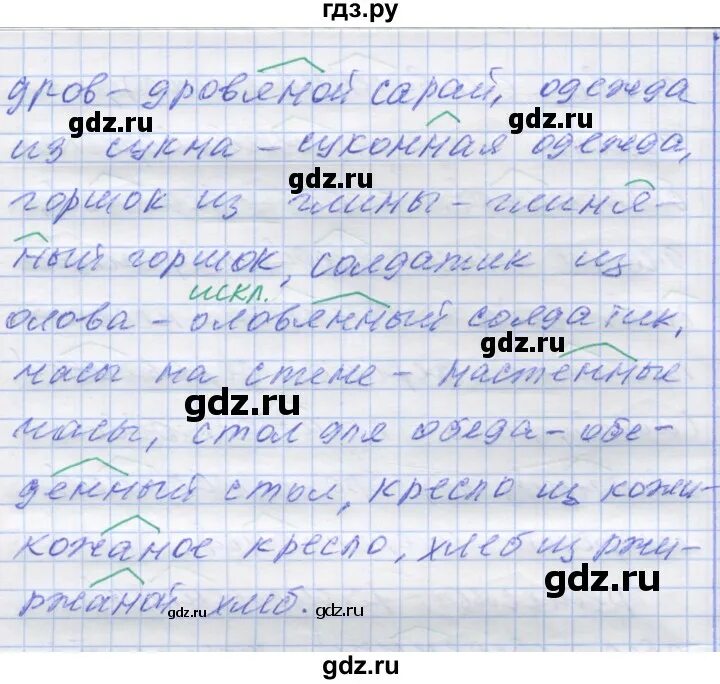 гдз.ру
дров - дровяной сарай, одежда
gdz.ru gdz.ru
из сукна - суконная одежда,
gdz.ru
горшок из глины - глиня-
ный горшок, солдатик из
искл.
олова - оловянный солдатик,
gdz.ru
часы на стене - настенные
gdz.ru
часы, стол для обеда - обе-
денный стол, кресло из кожи-
кожаное кресло, хлеб из ржи-
gdz.ru
ржаной хлеб.
gdz.ru
gdz.ru